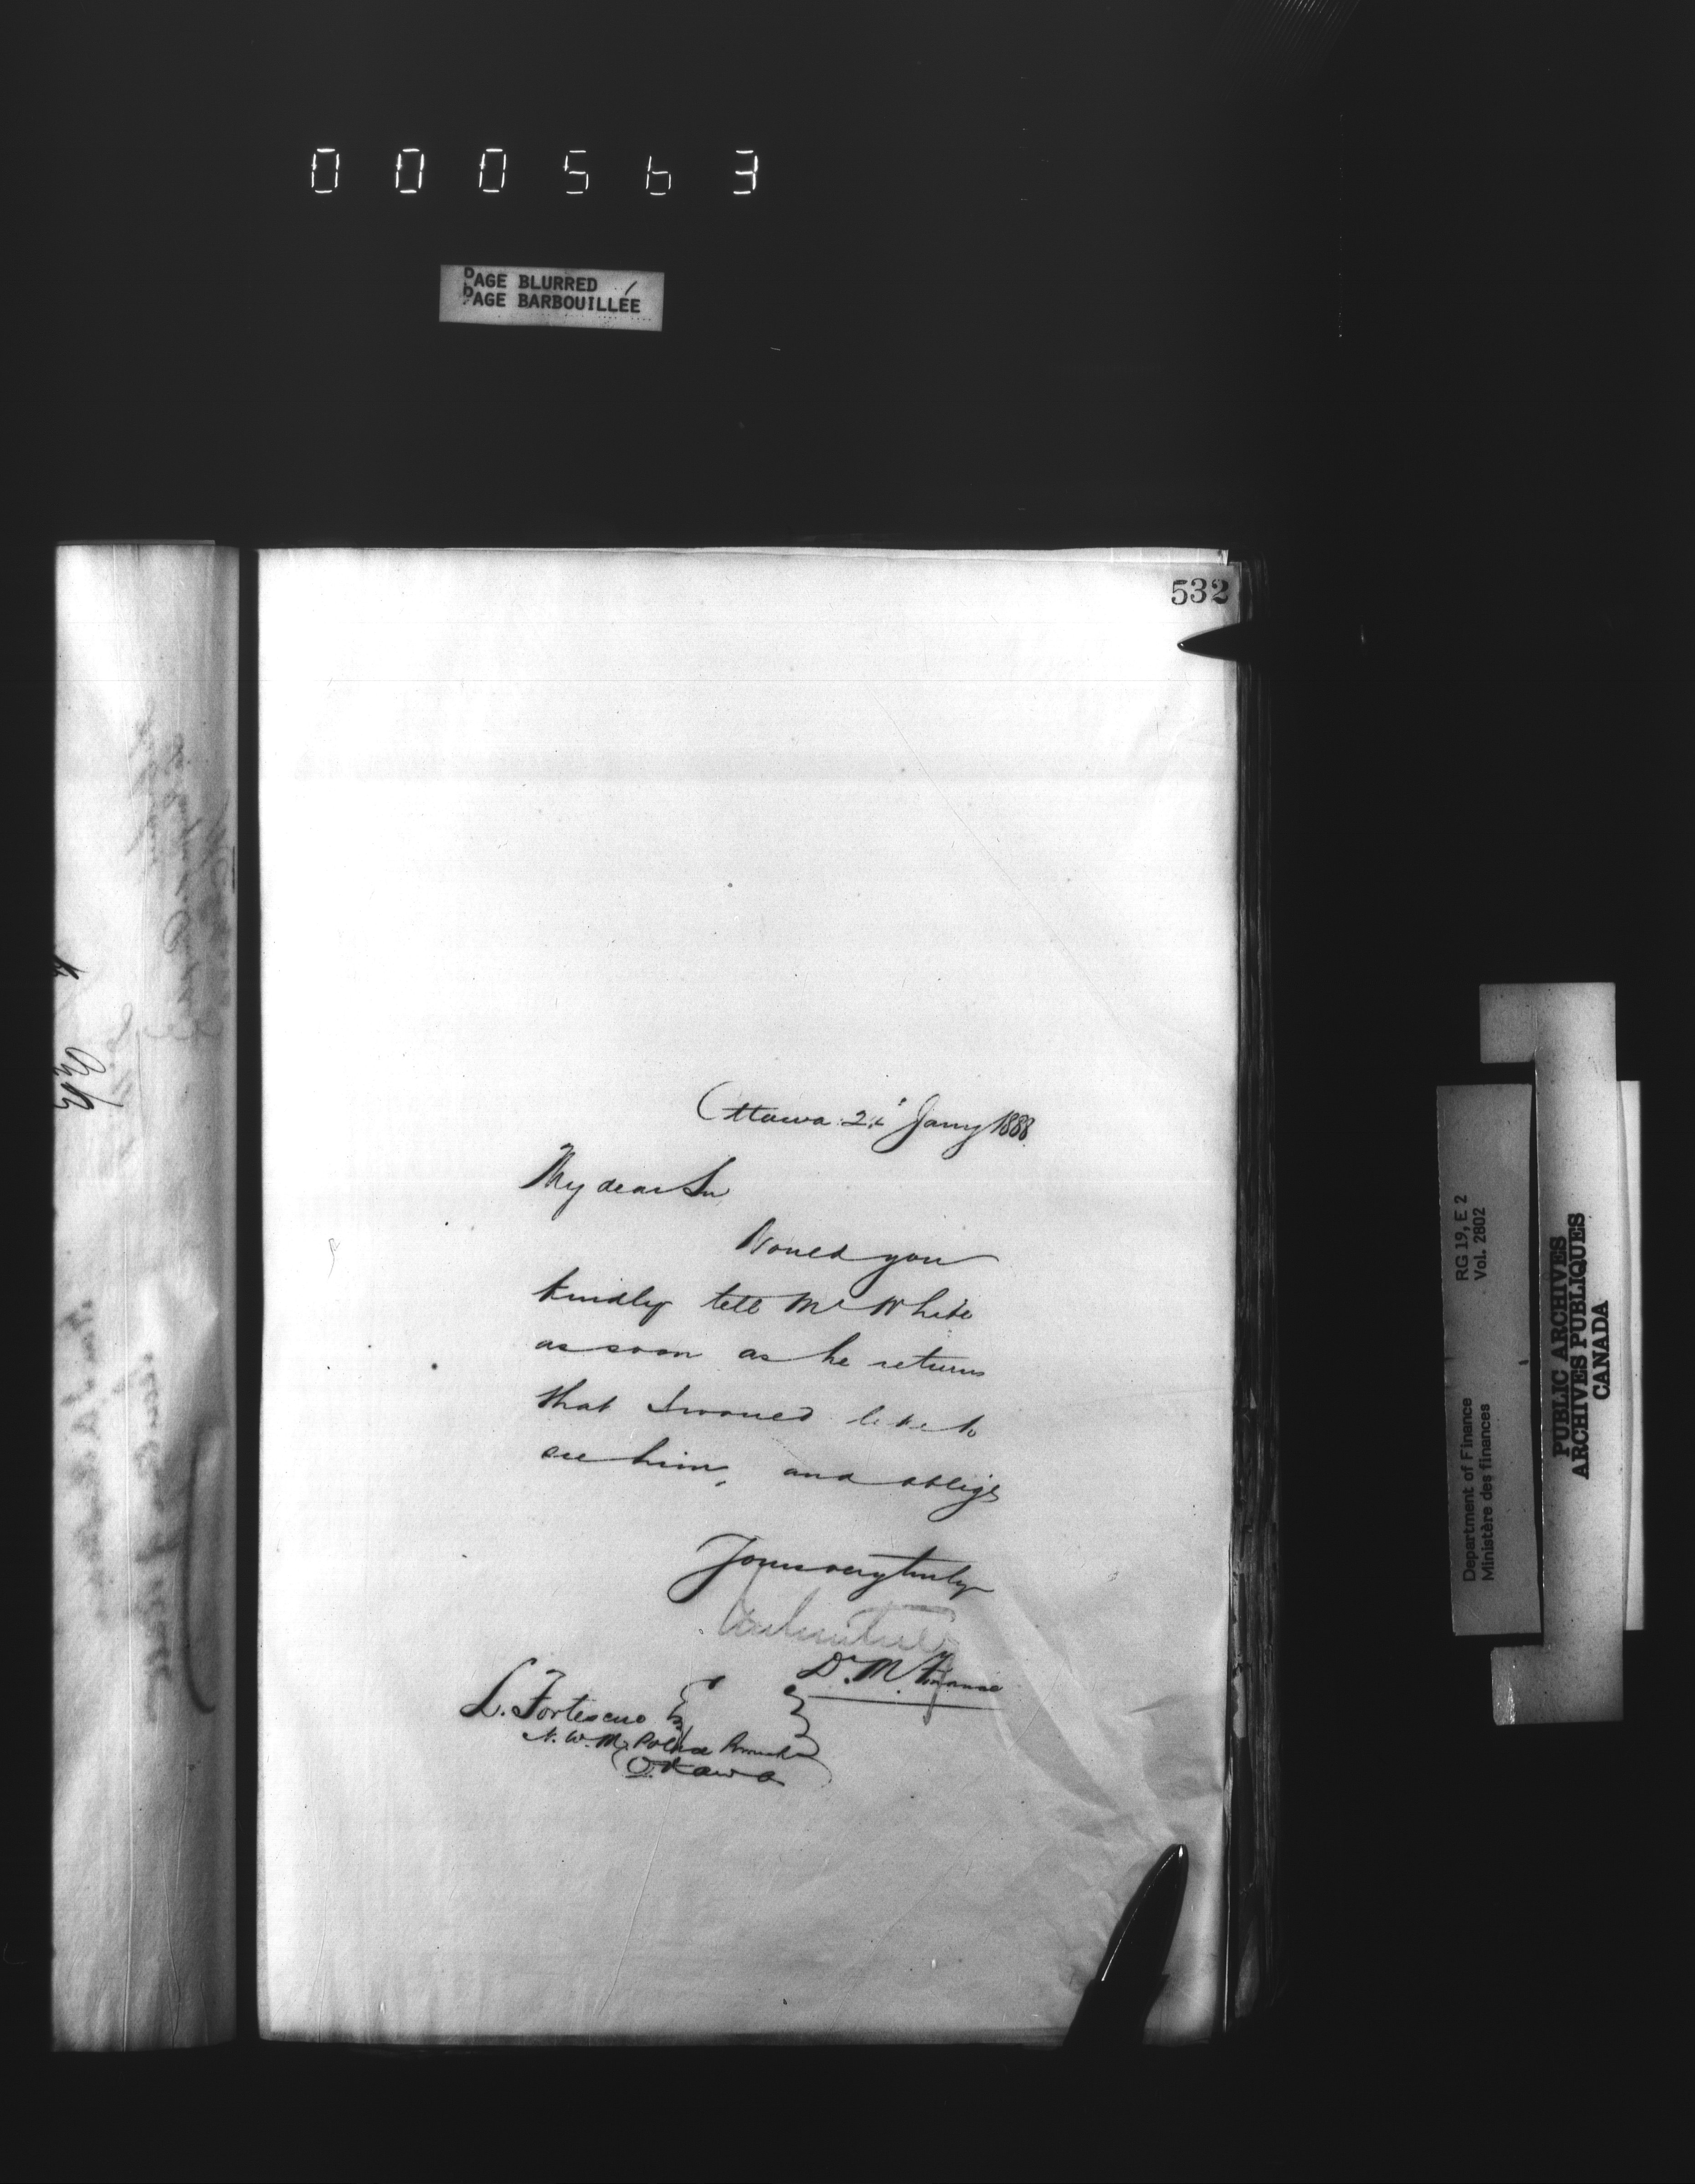 000563
PAGE BLURRED
PAGE BARBOUILLÉE
532
Ottawa 2 Jany 1888
My dear Sir
Would you
kindly tell Mr White
as soon as he returns
that I would like to
see him, and oblige
Yours very truly
D. M. Finance
L. Fortescue Esq
N. W. M. Police Branch
Ottawa
RG 19, E 2
Vol. 2802
Department of Finance
Ministère des finances
PUBLIC ARCHIVES
ARCHIVES PUBLIQUES
CANADA